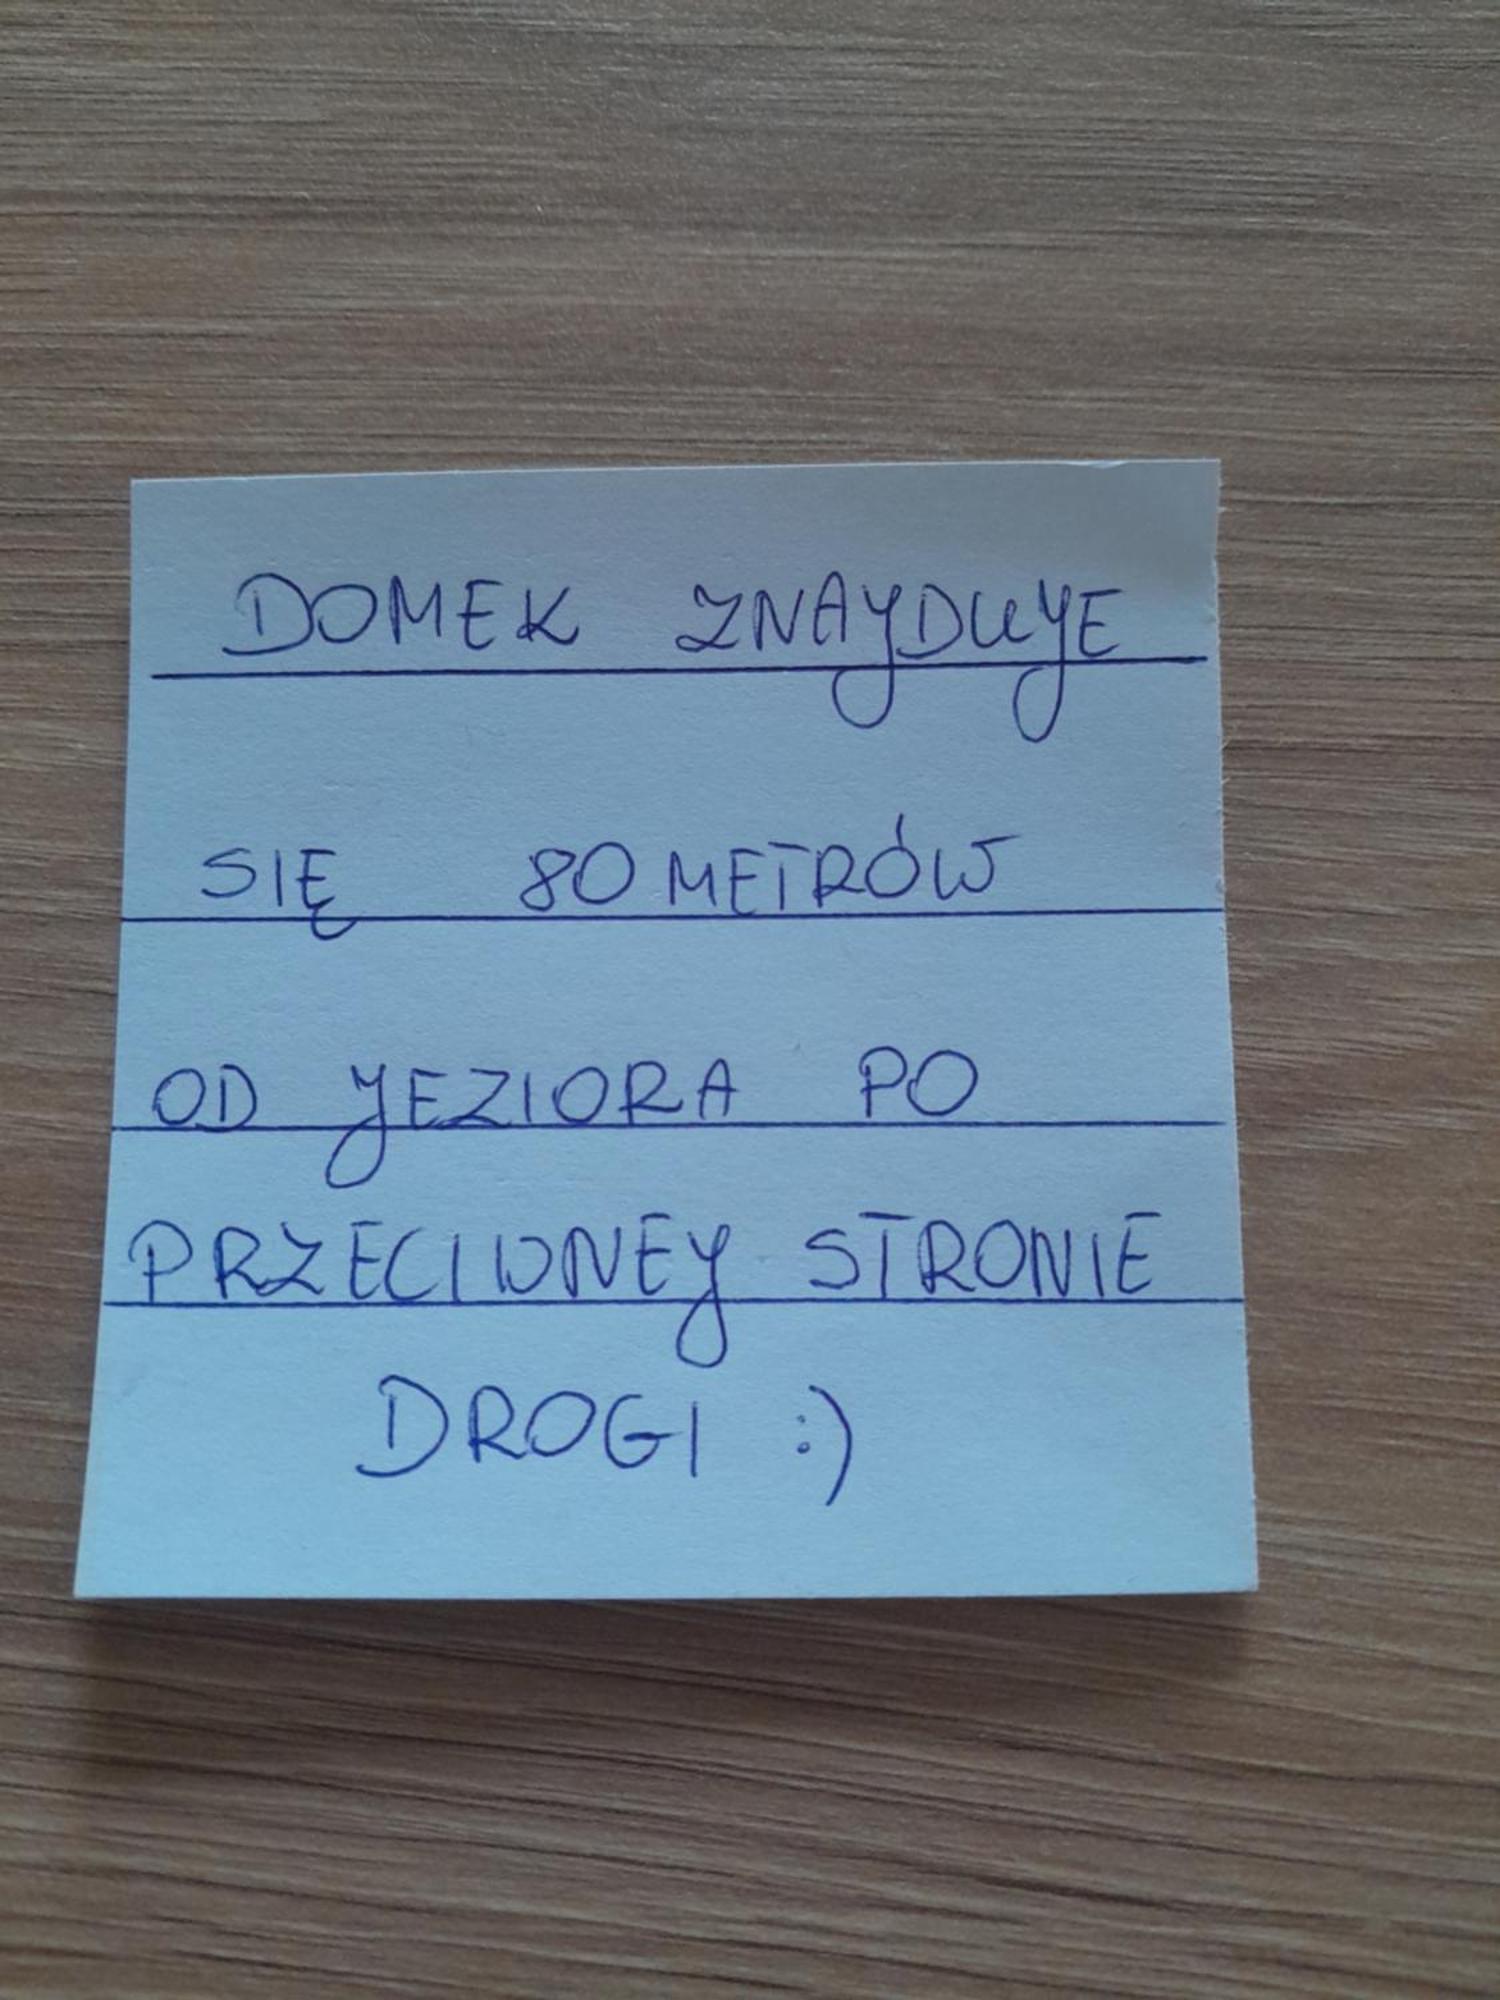 DOMEK ZNAJDUJE
SIĘ 80 METRÓW
OD JEZIORA PO
PRZECIWNEJ STRONIE
DROGI :)